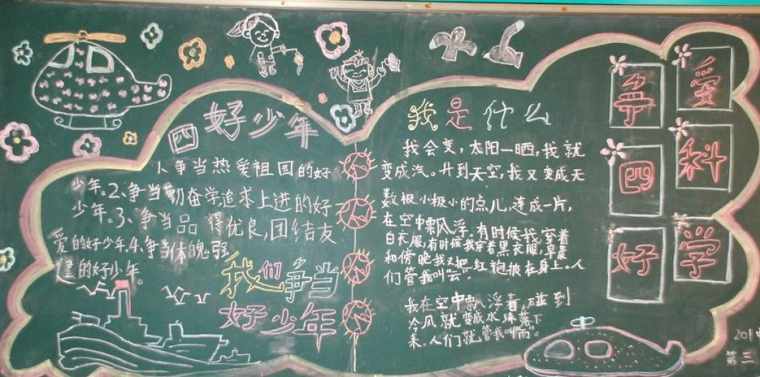 四好少年
1、争当热爱祖国的好
少年。2、争当勤奋学追求上进的好
少年。3、争当品得优良,团结友
爱的好少年,4、争当体魄强
健的好少年。
我们争当
好少年
我是什么
我会变,太阳一晒,我就
变成汽。升到天空,我又变成无
数极小极小的点儿,连成一片,
在空中飘浮。有时候我穿着
白衣服,有时候我穿着黑衣服,早晨
和傍晚我又把红袍披在身上。人
们管我叫“云”。
我在空中飘浮着,碰到
冷风就变成水珠落下
来,人们就管我叫“雨”。
争 爱
四 科
好 学
201
第三